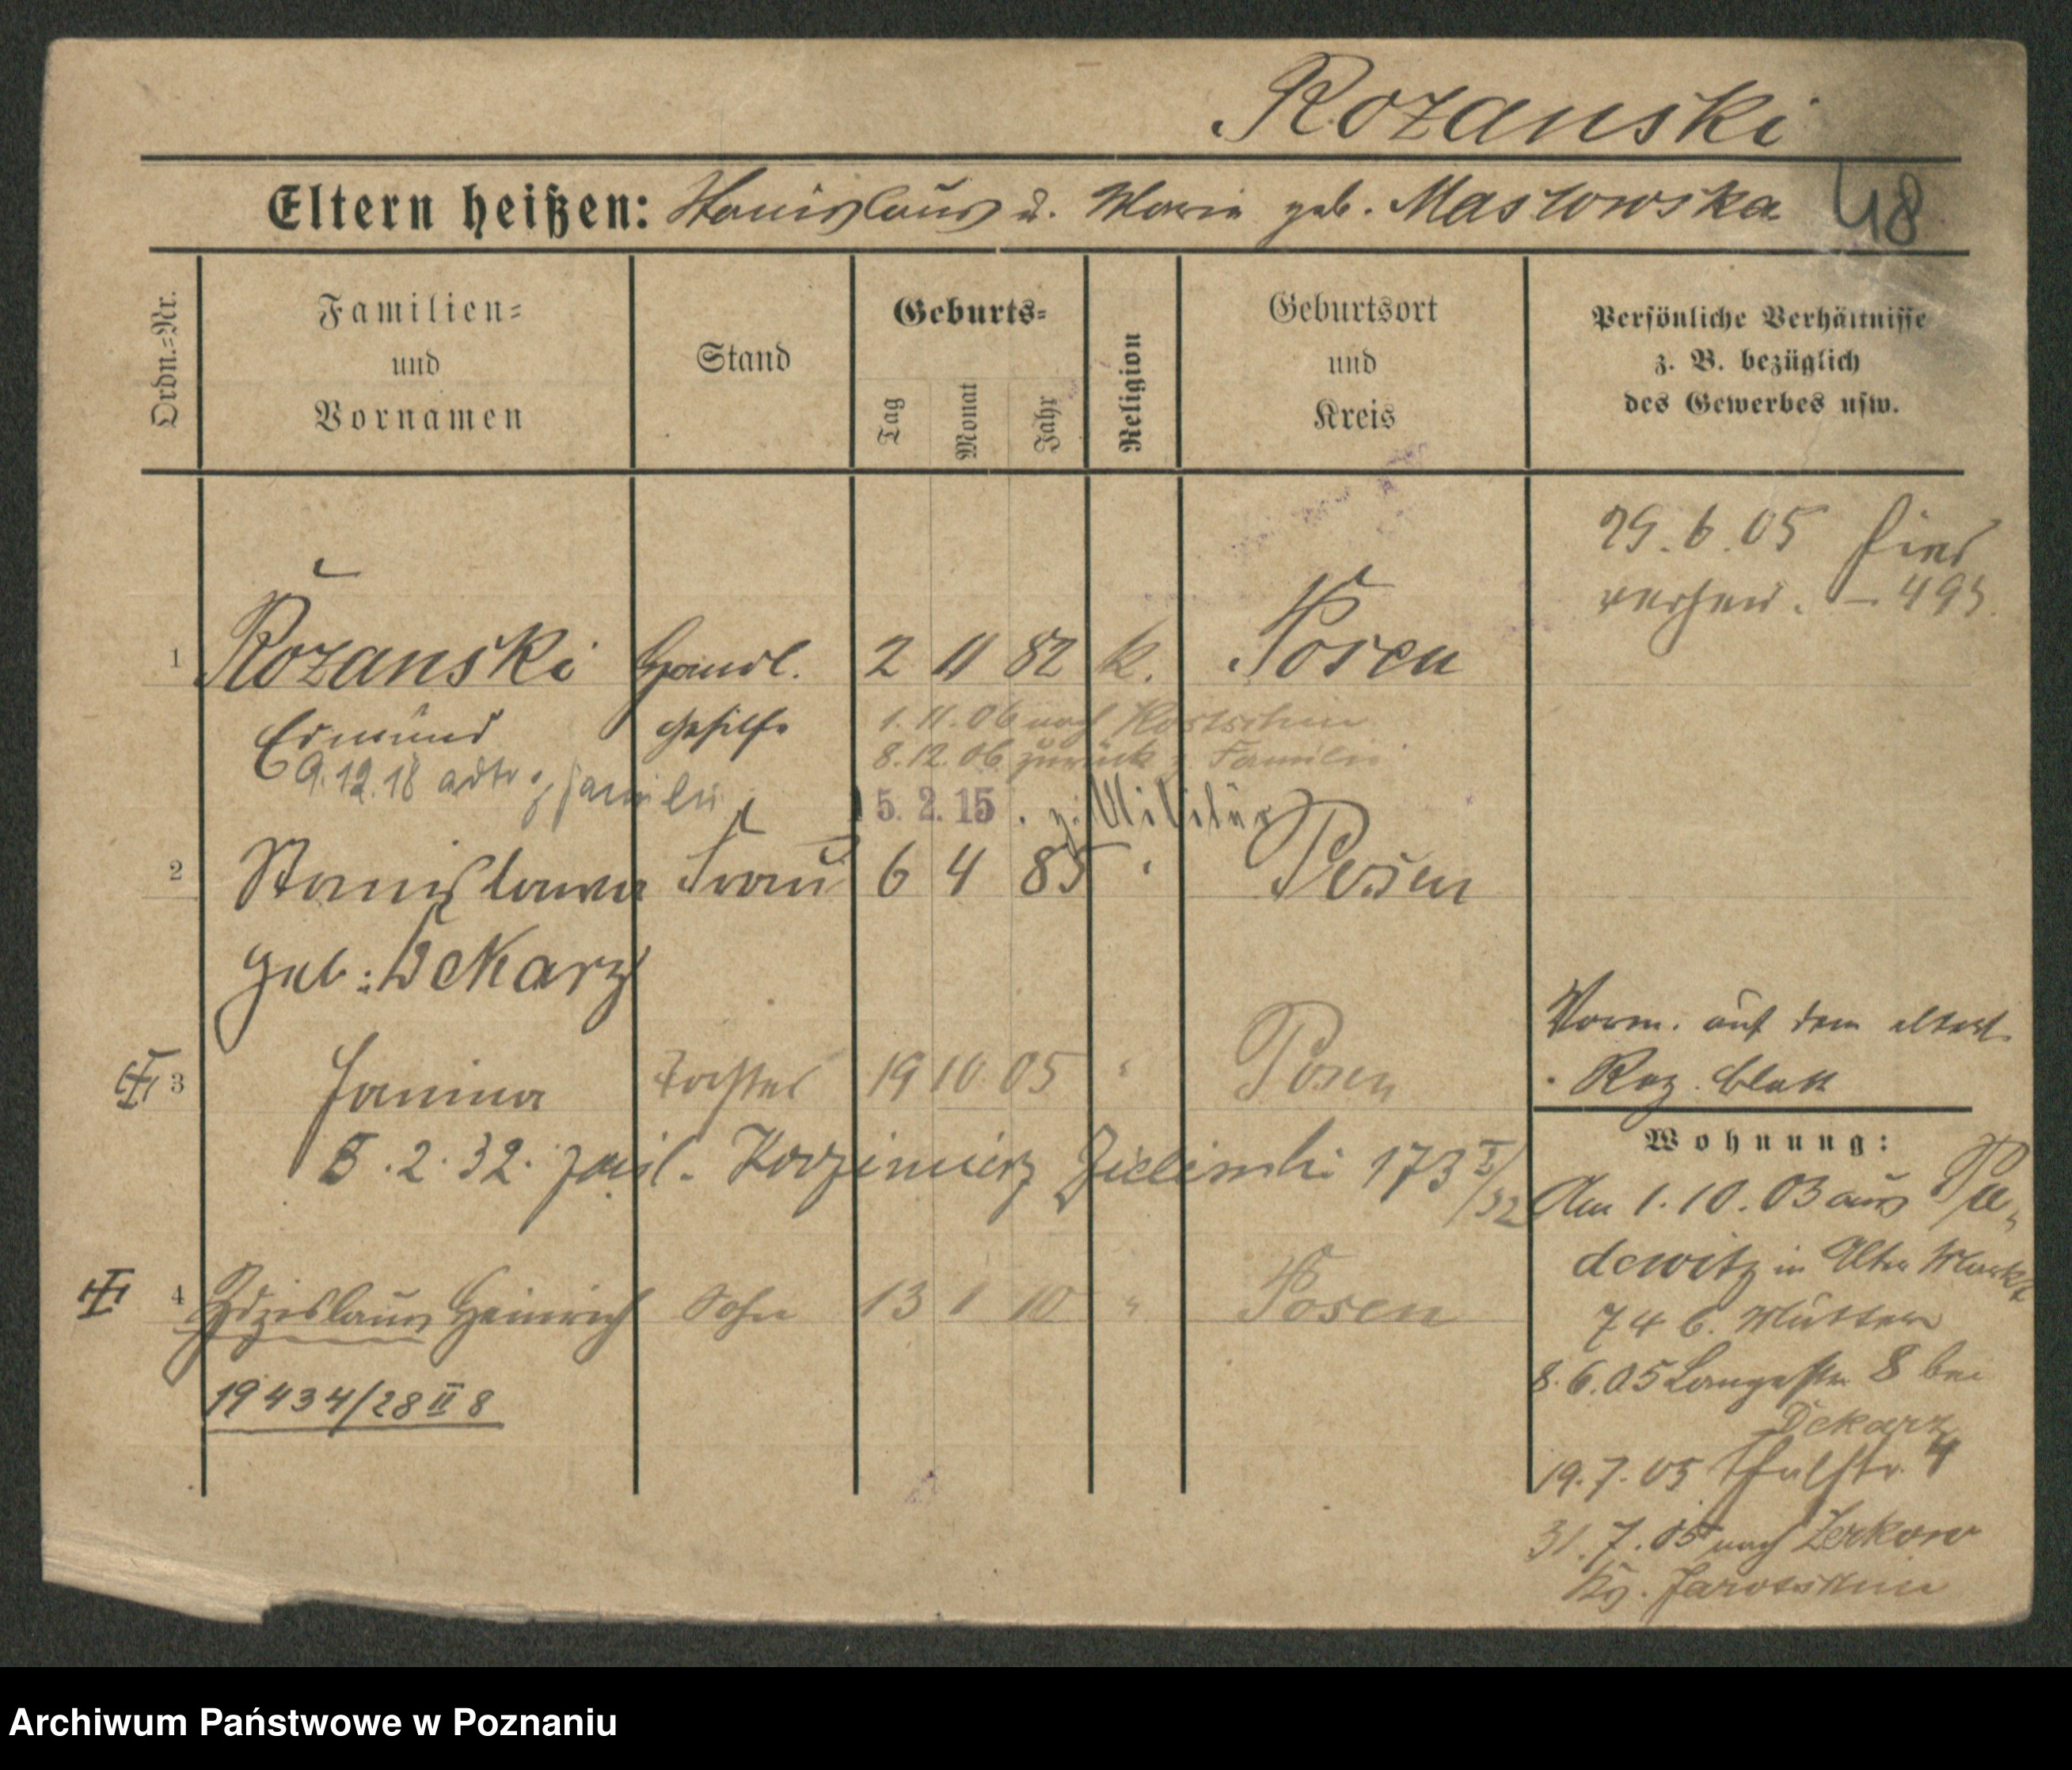 Rozanski
Eltern heißen: Stanislaus u. Maria geb. Maslowska 48
Ordn.=Nr.
Familien=
und
Vornamen
Stand
Geburts=
Tag
Monat
Jahr
Religion
Geburtsort
und
Kreis
Persönliche Verhältnisse
z. B. bezüglich
des Gewerbes usw.
29.6.05 hier
verheir. – 493
1 Rozanski Handl. 2 11 82 k. Posen
Edmund gehilfe 1.11.06 nach Kostschin
8.12.06 zurück z. Familie
9.12.18 Familie
5. 2. 15 . z. Militär
2 Stanislawa Frau 6 4 85 " Posen
geb: Dekarz
Verm. auf dem elterl.
Reg. blatt
3 Janina Tochter 19 10 05 " Posen
5.2.32. Kazimierz Zielinski 173 I/32
4 Zdzislaus Heinrich Sohn 13 1 10 " Posen
19434/28 II 8
Wohnung:
Am 1.10.03 aus Pu-
dewitz in Alter Markt
74 b. Mutter
8.6.05 Langestr 8 bei
Dekarz
19.7.05 Thalstr. 4
31.7.05 nach Zerkow
Kr. Jarotschin
Archiwum Państwowe w Poznaniu